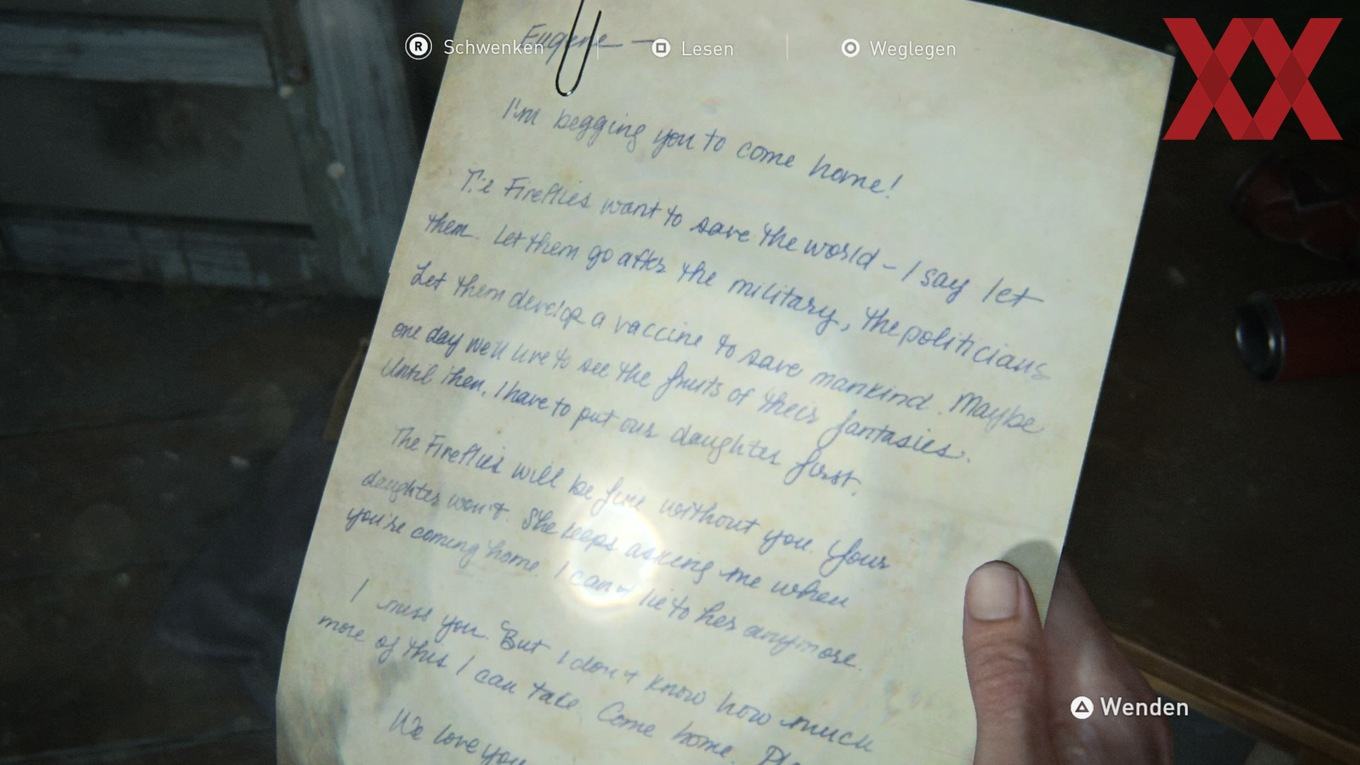 Schwenken Lesen Weglegen
Eugene —
I'm begging you to come home!
The Fireflies want to save the world – I say let
them. Let them go after the military, the politicians
Let them develop a vaccine to save mankind. Maybe
one day we'll live to see the fruits of their fantasies.
Until then, I have to put our daughter first.
The Fireflies will be fine without you. Your
daughter won't. She keeps asking me when
you're coming home. I can't lie to her anymore.
I miss you. But I don't know how much
more of this I can take. Come home.
We love you
Wenden